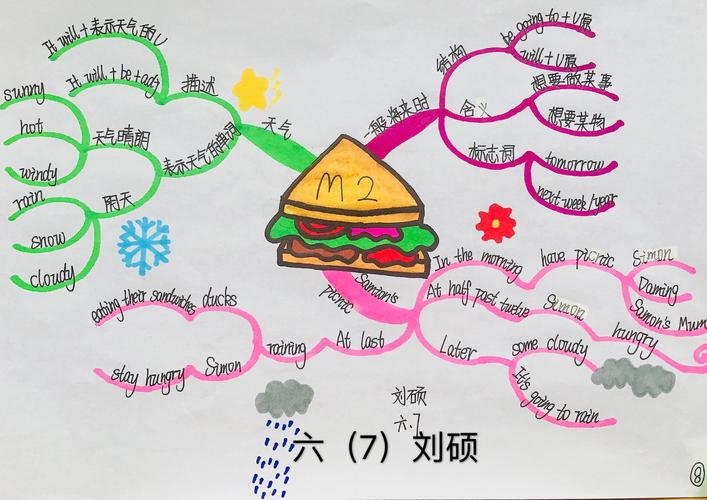 M2
天气
描述
It will + 表示天气的U
It will + be + adj
表示天气的单词
天气晴朗
sunny
hot
windy
雨天
rain
snow
cloudy
一般将来时
结构
be going to + U原
will + U原
含义
想要做某事
想要某物
标志词
tomorrow
next week/year
Simion's
picnic
In the morning
have picnic
Simon
Daming
Samon's Mum
At half past twelve
Simon
hungry
Later
some cloudy
It's going to rain
At last
raining
ducks
eating their sandwiches
Simon
stay hungry
刘硕
六.7
六（7）刘硕
8